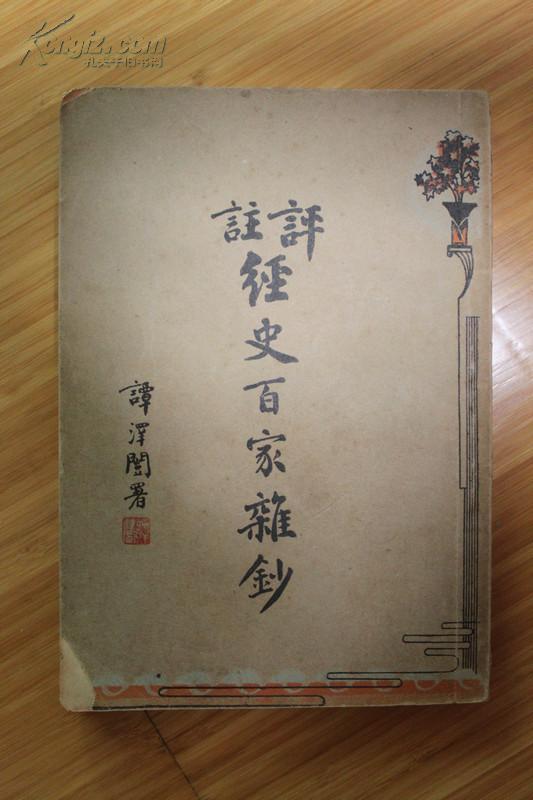 Kongfz.com
孔夫子旧书网
評註
經史百家雜鈔
譚澤闓署